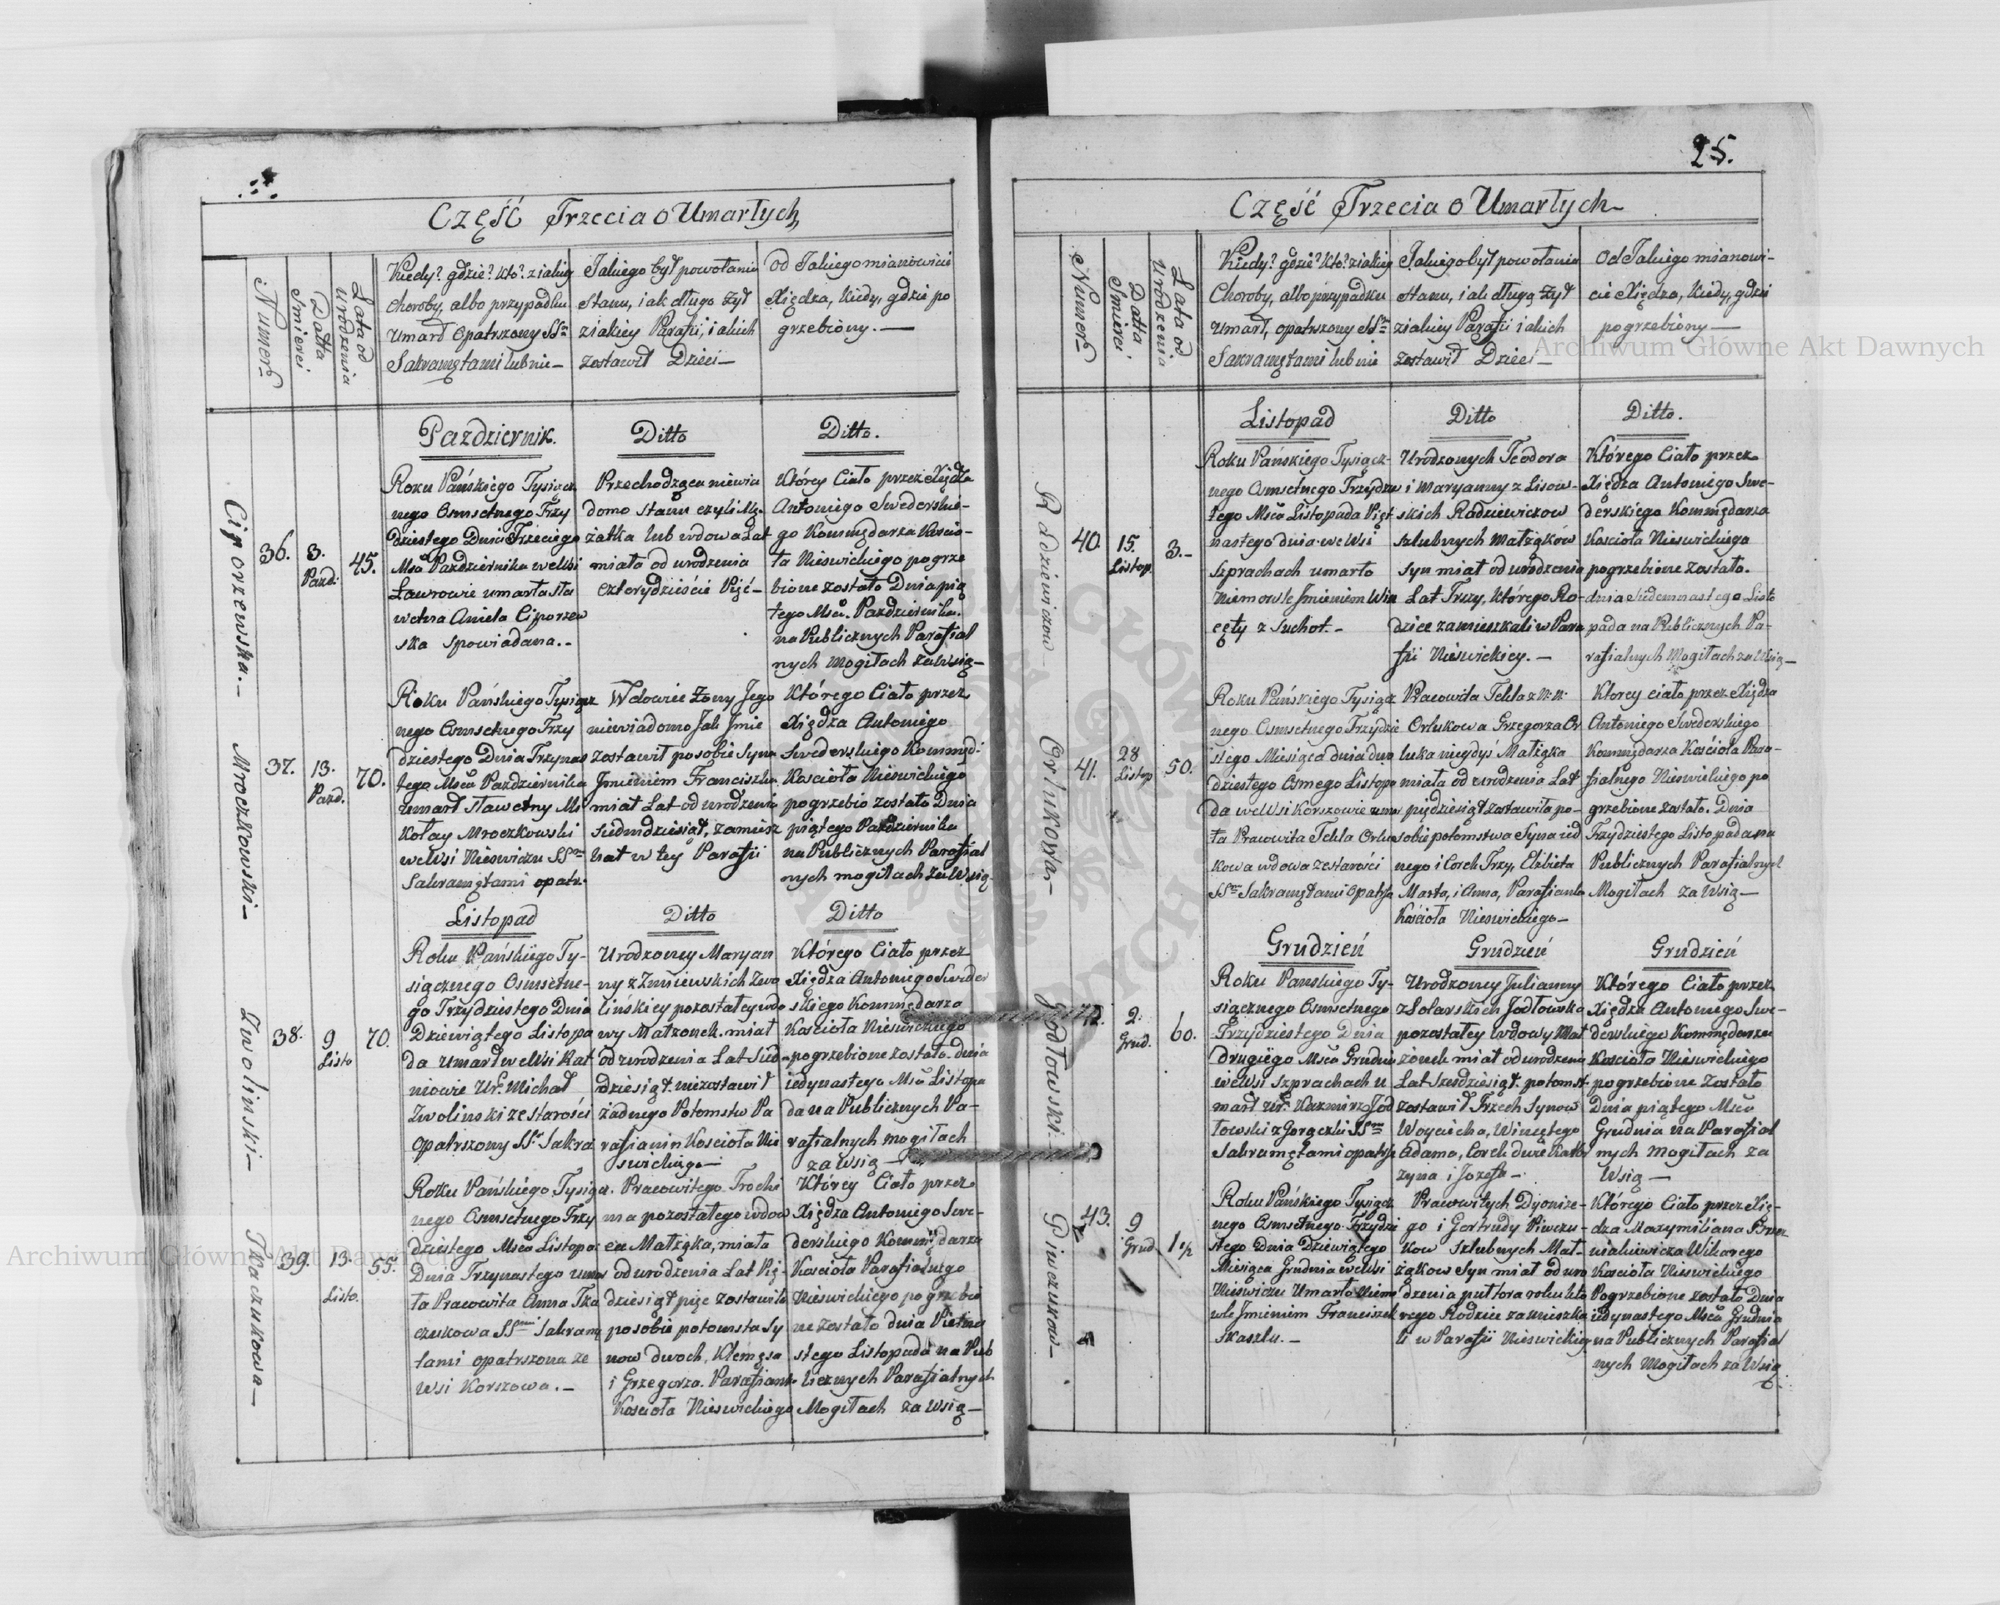 Część Trzecia o Umarłych
Numer
Datta Smierci
Lata od Urodzenia
Kiedy? gdzie? kto? z iakiey
Choroby, albo przypadku
Umarł opatrzony SS.
Sakramętami lub nie —
Jakiego był powołania
Stanu, iak długo żył
z iakiey Parafii, i akich
zostawił Dzieci —
od Jakiego mianowicie
Xiędza, kiedy, gdzie po
grzebiony. —
Październik.
Ditto
Ditto.
Ciporzewska. —
36.
3. Pazd:
45.
Roku Pańskiego Tysiącz
nego Osmsetnego Trzy
dziestego Dnia Trzeciego
Msca Pazdziernika we Wsi
Ławrowie umarła sta
wetna Aniela Ciporzew
ska spowiadana. —
Przechodząca niewia
domo stanu czyli Mę-
żatka lub wdowa Lat
miała od urodzenia
czterydzieście Pięć —
Którey Ciało przez Xiędza
Antoniego Swederskie-
go Kommędarza Kościo-
ła Nieswickiego pogrze
bione zostało Dnia pią
tego Msca. Pazdziernika.
na Publicznych Parafial
nych Mogiłach za Wsią —
Mroczkowski —
37.
13. Pazd.
70.
Roku Pańskiego Tysiącz
nego Osmsetnego Trzy
dziestego Dnia Trzynas
tego Msca Pazdziernika
umarł sławetny Mi
kołay Mroczkowski
we Wsi Nieswiczu SS.
Sakramętami opatr.
Wdowiec Żony Jego
niewiadomo Jak Jmie
zostawił po sobie Syna
Jmieniem Franciszka
miał Lat od urodzenia
siedmdziesiąt, zamiesz
kał w tey Parafii
Którego Ciało przez
Xiędza Antoniego
Swederskiego Kommęd:
Kościoła Nieswickiego
pogrzebio zostało Dnia
piątego Pazdziernika
na Publicznych Parafial
nych mogiłach za Wsią
Listopad
Ditto
Ditto
Zwolinski —
38.
9 Listo
70.
Roku Pańskiego Ty-
siącznego Osmsetne-
go Trzydziestego Dnia
Dziewiątego Listopa
da umarł we Wsi Rat
niowie Ur. Michał
Zwolinski ze starości
opatrzony SS. Sakra.
Urodzoney Maryan
ny z Zmiewskich Zwo
linskiey pozostałey wdo
wy Małzonek. miał
od urodzenia Lat Siedm
dziesiąt. nie zostawił
żadnego Potomstw Pa
rafianin Kościoła Nie
swickiego —
Którego Ciało przez
Xiędza Antoniego Sweder
skiego Kommędarza
Kościoła Nieswickiego
pogrzebione zostało. dnia
iedynastego Msca Listopa
da na Publicznych Pa-
rafialnych mogiłach
za Wsią —
Tkaczukowa —
39.
13. Listo.
55.
Roku Pańskiego Tysiącz.
nego Osmsetnego Trzy
dziestego Msca Listopa:
Dnia Trzynastego umar
ła Pracowita Anna Tka
czukowa SS. Sakram
tami opatrzona ze
Wsi Korszowa. —
Pracowitego Trochi
ma pozostałego wdow
ca Małżąka, miała
od urodzenia Lat Pię-
dziesiąt pięc zostawiła
po sobie potomsta Sy
now dwoch, Klemęsa
i Grzegorza. Parafianka
Kościoła Nieswickiego
Którey Ciało przez
Xiędza Antoniego Swe-
derskiego Kommędarza
Kościoła Parafialnego
Nieswickiego pogrzebio
ne zostało dnia Pietna
stego Listopada na Pub
licznych Parafialnych
Mogiłach za Wsią —
25.
Część Trzecia o Umarłych —
Numer
Datta Smierci
Lata od Urodzenia
Kiedy? gdzie? kto? z iakiey
Choroby, albo przypadku
Umarł, opatrzony SS.
Sakramętami lub nie
Jakiego był powołania
stanu, iak długo żył
z iakiey Parafii i akich
zostawił Dzieci —
Od Jakiego mianowi-
cie Xiędza, kiedy, gdzie
pogrzebiony —
Listopad
Ditto
Ditto.
Radziewiczow —
40.
15. Listop.
3. —
Roku Pańskiego Tysiącz-
nego Osmsetnego Trzydzie
stego Msca Listopada Pięt
nastego dnia we Wsi
Szprachach umarło
Niemowle Jmieniem Win
cęty z Suchot. —
Urodzonych Teodora
i Maryanny z Lisow-
skich Radziewiczow
szlubnych Małżąków
syn miał od urodzenia
Lat Trzy, którego Ro-
dzice zamieszkali w Para
fii Nieswickiey. —
Którego Ciało przez
Xiędza Antoniego Swe-
derskiego Kommędarza
Kościoła Nieswickiego
pogrzebione zostało.
dnia siedemnastego Listo
pada na Publicznych Pa-
rafialnych Mogiłach za Wsią —
Orlukowa. —
41.
28 Listop
50.
Roku Pańskiego Tysiącz
nego Osmsetnego Trzydzie
stego Miesiąca dnia dwu
dziestego Osmego Listopa
da we Wsi Korszowie umar
ła Pracowita Tekla Orlu
kowa wdowa ze starości
SS. Sakramętami Opatrzo
Pracowita Tekla z N: N:
Orlukowa Grzegorza Or
luka niegdyś Małżąka
miała od urodzenia Lat
pięcdziesiąt zostawiła po-
sobie potomstwa Syna ied
nego i Corek Trzy, Elżbieta
Marta, i Anna, Parafianka
Kościoła Nieswickiego —
Ktorey ciało przez Xiędza
Antoniego Swederskiego
Kommędarza Kościoła Para-
fialnego Nieswickiego po
grzebione zostało. Dnia
Trzydziestego Listopada na
Publicznych Parafialnych
Mogiłach za Wsią —
Grudzień
Grudzień
Grudzień
Jodłowski.
42.
2. Grud.
60.
Roku Panskiego Ty-
siącznego Osmsetnego
Trzydziestego Dnia
drugiego Msca Grudnia
we Wsi Szprachach u
marł Ur. Kazimirz Jod
łowski z Gorączki SS.
Sakramętami opatrzo
Urodzoney Julianny
z Solarskich Jodłowska
pozostałey wdowy Mał
żonek miał od urodzenia
Lat sześdziesiąt. potomst
zostawił Trzech Synow
Woyciecha, Wincętego
Adama, Corek dwie Katar
zyna i Jozefa —
Którego Ciało przez
Xiędza Antoniego Swe-
derskiego Kommędarza
Kościoła Nieswickiego
pogrzebione zostało
Dnia piątego Msca
Grudnia na Parafial
nych Mogiłach za
Wsią —
Piwczukow —
43.
9 Grud
1 1/2
Roku Pańskiego Tysiącz
nego Osmsetnego Trzydzi
stego Dnia Dziewiątego
Miesiąca Grudnia we Wsi
Nieswiczu Umarło Niem
wle Jmieniem Franciszek
z Kaszlu. —
Pracowitych Dyonize-
go i Gertrudy Piwczu-
kow Szlubnych Mał-
żąkow Syn miał od uro
dzenia pułtora roku kto
rego Rodzice zamieszka
li w Parafii Nieswickiey
Którego Ciało przez Xię-
dza Maxymiliana
Wikarego
Kościoła Nieswickiego
Pogrzebione zostało Dnia
iedynastego Msca Grudnia
na Publicznych Parafial
nych Mogiłach za Wsią
Archiwum Główne Akt Dawnych
Archiwum Główne Akt Dawnych